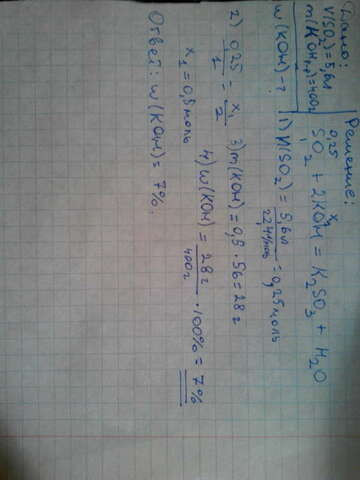 Дано:
V(SO₂)=5,6л
m(KOHр-р)=400г
w(KOH)-?
Решение:
0,25 x₁
SO₂ + 2KOH = K₂SO₃ + H₂O
1 2
1) n(SO₂) = 5,6л / 22,4л/моль = 0,25 моль
2) 0,25/1 = x₁/2
x₁ = 0,5 моль
3) m(KOH) = 0,5 · 56 = 28 г
4) w(KOH) = 28 г / 400г · 100% = 7%
Ответ: w(KOH) = 7%.